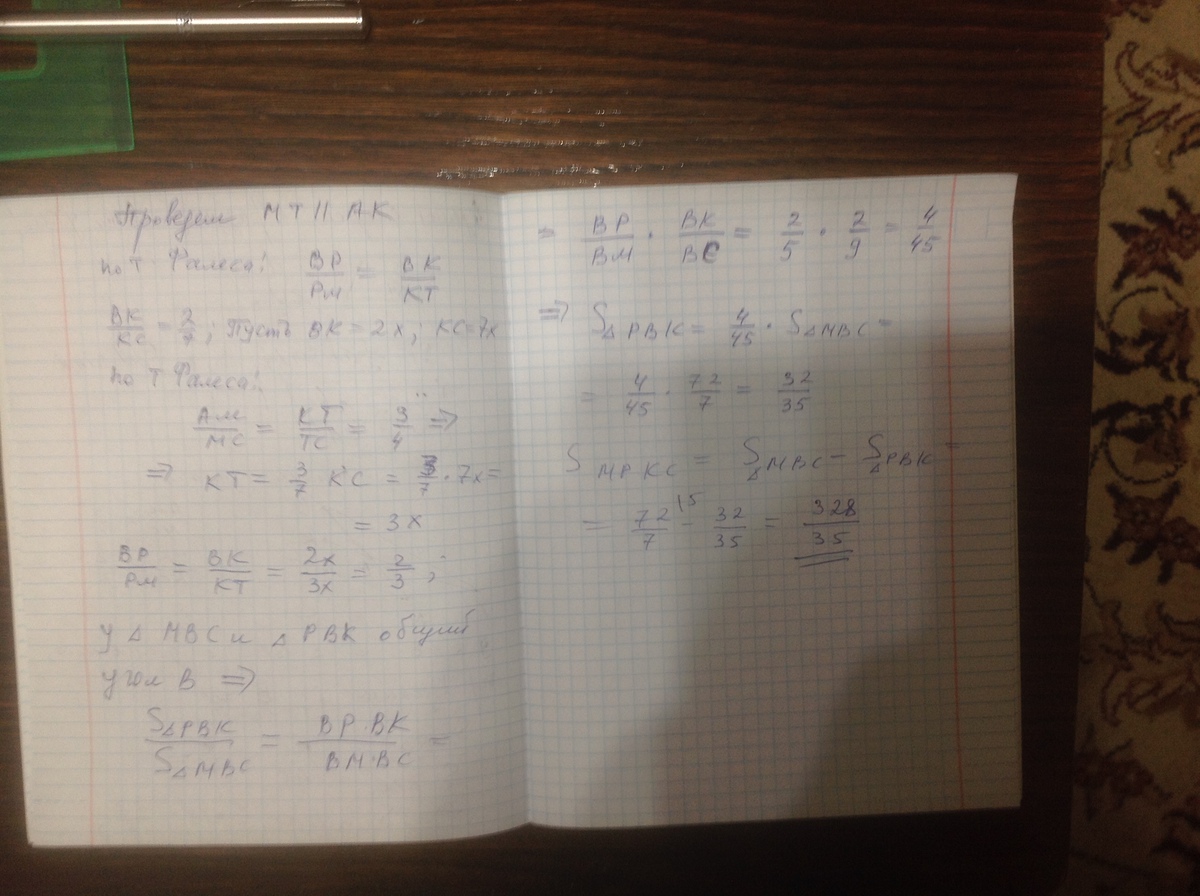 Проведем MT || AK
по т Фалеса: BP/PM = BK/KT
BK/KC = 2/7; Пусть BK = 2x; KC = 7x
по т Фалеса:
AM/MC = KT/TC = 3/4 =>
=> KT = 3/7 KC = 3/7 · 7x =
= 3x
BP/PM = BK/KT = 2x/3x = 2/3;
У △ MBC и △ PBK общий
угол B =>
S△PBK/S△MBC = BP·BK/BM·BC =
= BP/BM · BK/BC = 2/5 · 2/9 = 4/45
=> S△PBK = 4/45 · S△MBC =
= 4/45 · 72/7 = 32/35
S MPKC = S△MBC - S△PBK =
= 72/7 \5 - 32/35 = 328/35